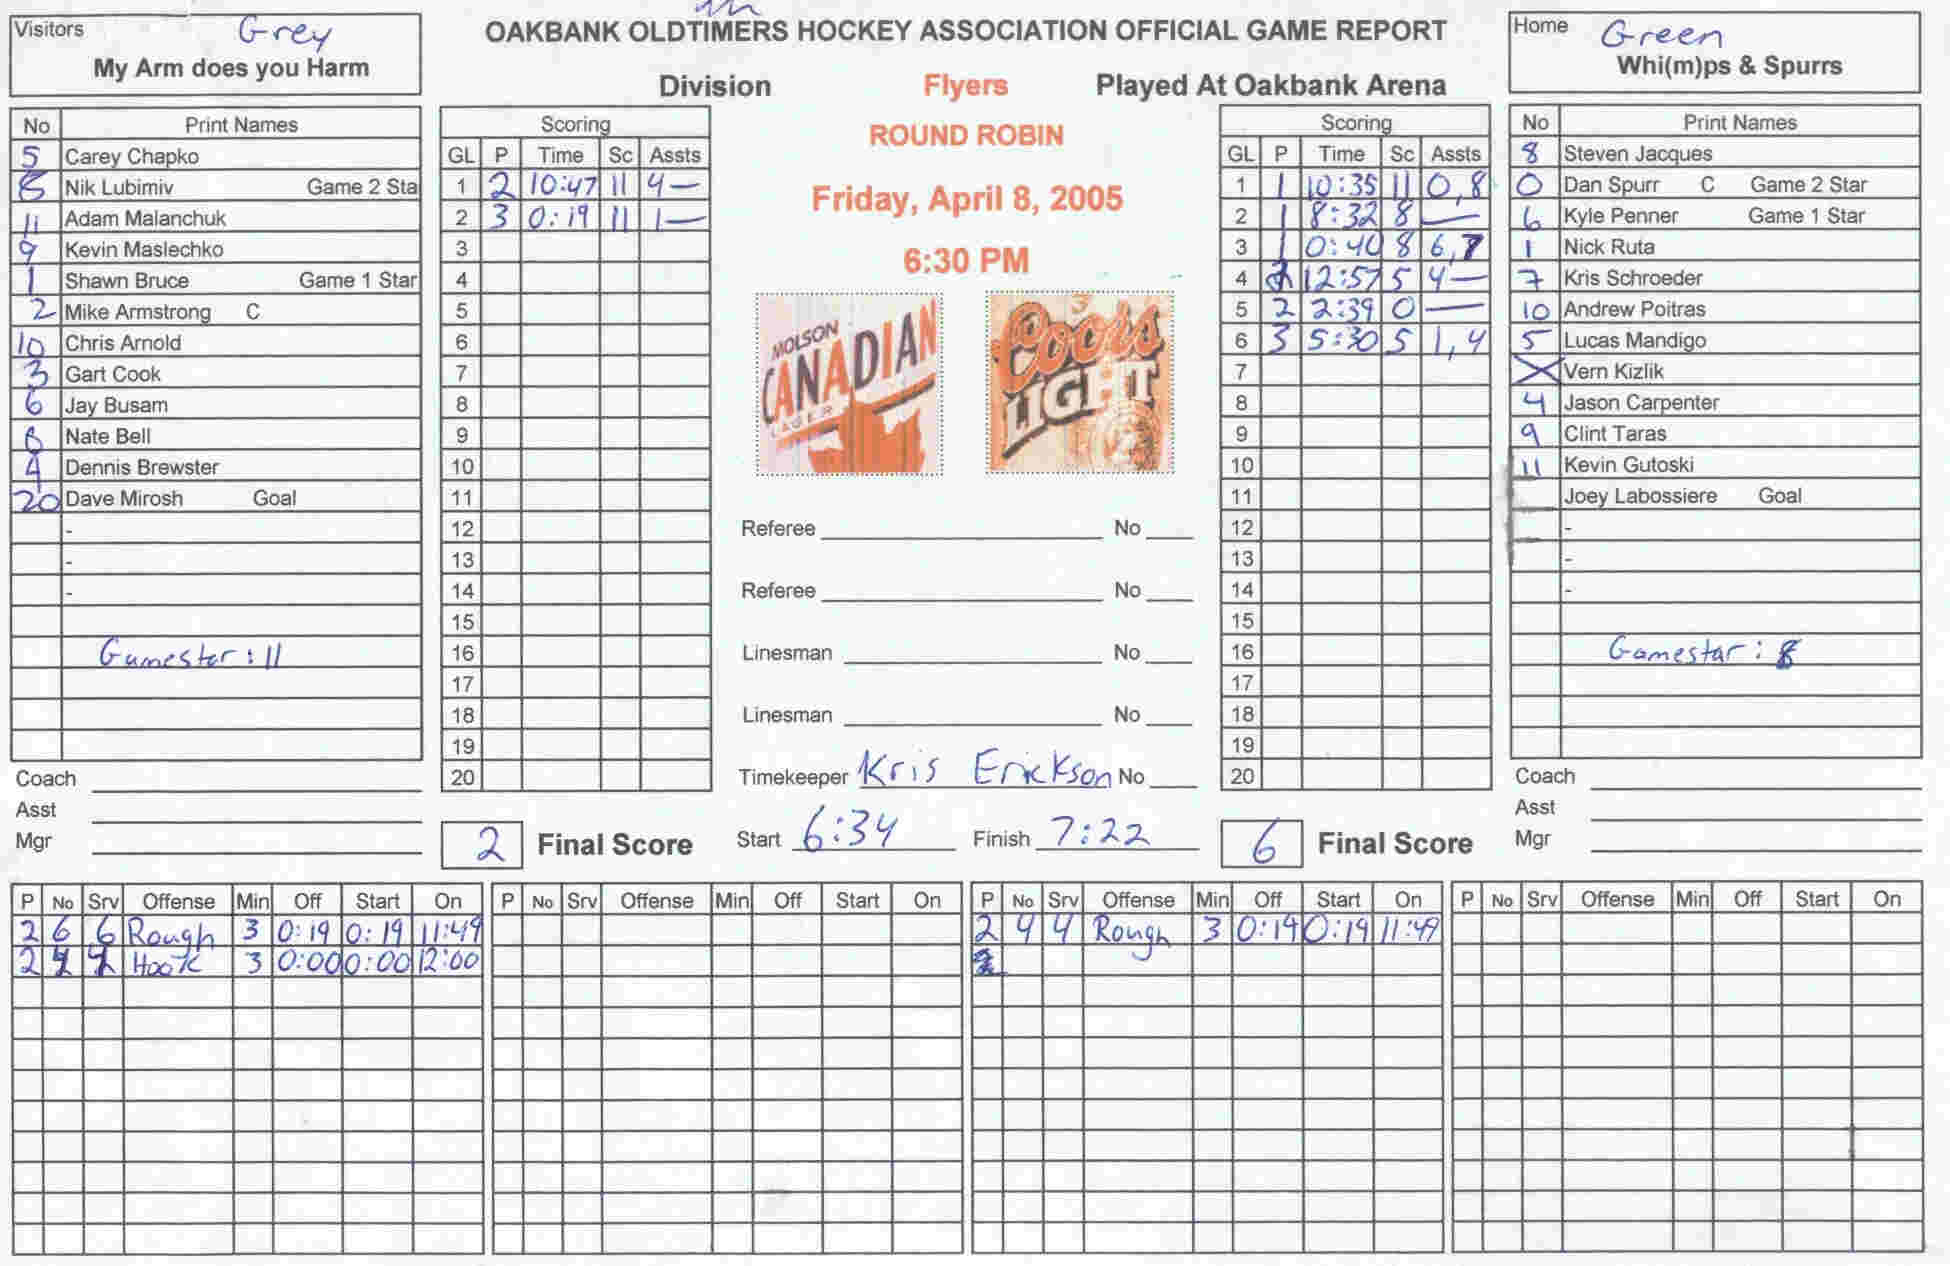 Visitors Grey
My Arm does you Harm
OAKBANK OLDTIMERS HOCKEY ASSOCIATION OFFICIAL GAME REPORT
Division Flyers Played At Oakbank Arena
ROUND ROBIN
Friday, April 8, 2005
6:30 PM
Home Green
Whi(m)ps & Spurrs
No Print Names
5 Carey Chapko
8 Nik Lubimiv Game 2 Sta
11 Adam Malanchuk
9 Kevin Maslechko
1 Shawn Bruce Game 1 Star
2 Mike Armstrong C
10 Chris Arnold
3 Gart Cook
6 Jay Busam
Nate Bell
4 Dennis Brewster
20 Dave Mirosh Goal
-
-
-
Gamestar: 11
Coach
Asst
Mgr
Scoring
GL P Time Sc Assts
1 2 10:47 11 4 —
2 3 0:19 11 1 —
3
4
5
6
7
8
9
10
11
12
13
14
15
16
17
18
19
20
2 Final Score
MOLSON
CANADIAN
LAGER
Coors
LIGHT
Referee No
Referee No
Linesman No
Linesman No
Timekeeper Kris Erickson No
Start 6:34 Finish 7:22
Scoring
GL P Time Sc Assts
1 1 10:35 11 0,8
2 1 8:32 8 —
3 1 0:40 8 6,7
4 2 12:57 5 4 —
5 2 2:39 0 —
6 3 5:30 5 1,4
7
8
9
10
11
12
13
14
15
16
17
18
19
20
6 Final Score
No Print Names
8 Steven Jacques
0 Dan Spurr C Game 2 Star
6 Kyle Penner Game 1 Star
1 Nick Ruta
7 Kris Schroeder
10 Andrew Poitras
5 Lucas Mandigo
X Vern Kizlik
4 Jason Carpenter
9 Clint Taras
11 Kevin Gutoski
Joey Labossiere Goal
-
-
-
Gamestar: 8
Coach
Asst
Mgr
P No Srv Offense Min Off Start On
2 6 6 Rough 3 0:19 0:19 11:49
2 Hook 3 0:00 0:00 12:00
P No Srv Offense Min Off Start On
P No Srv Offense Min Off Start On
2 4 4 Rough 3 0:19 0:19 11:49
P No Srv Offense Min Off Start On